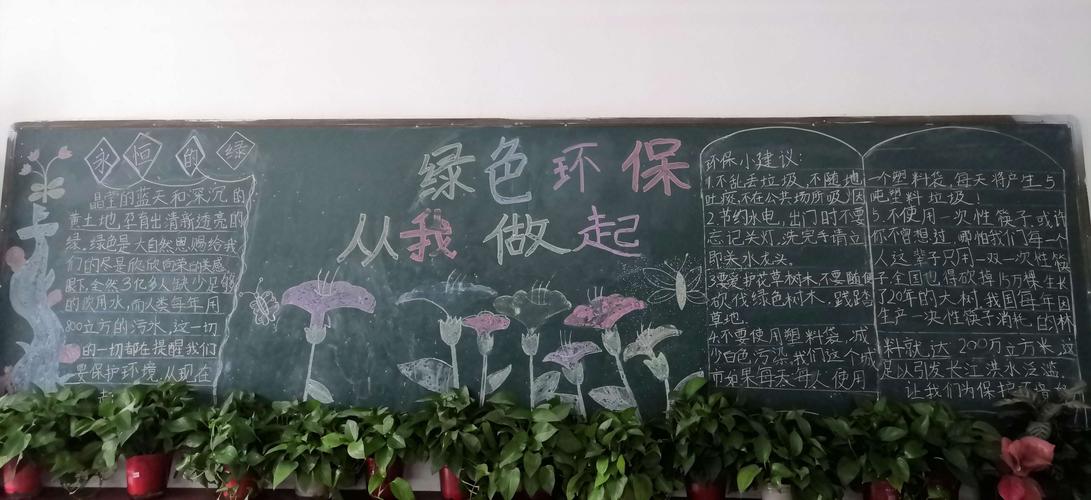 绿色环保
从我做起
永恒的绿
晶莹的蓝天和深沉的
黄土地,孕育出清新透亮的
绿,绿色是大自然恩赐给我
们的尽是欣欣向荣的美感
眼下,全然3亿多人缺少足够
的饮用水,而人类每年用
800立方的污水,这一切
的一切都在提醒我们
要保护环境,从现在
环保小建议:
1.不乱丢垃圾,不随地
吐痰,不在公共场所吸烟
2.节约水电,出门时不要
忘记关灯,洗完手请立
即关水龙头。
3.要爱护花草树木,不要随便
砍伐绿色树木,践踏
草地。
4.不要使用塑料袋,减
少白色污染,我们这个城
市如果每天每人使用
一个塑料袋,每天将产生5
吨塑料垃圾!
5.不使用一次性筷子或许
你不曾想过,哪怕我们每一个
人这辈子只用一双一次性筷
子全国也得砍掉15万棵生长
了20年的大树,我国每年因
生产一次性筷子消耗的林
料就达200万立方米这
足以引发长江洪水泛滥,
让我们为保护环